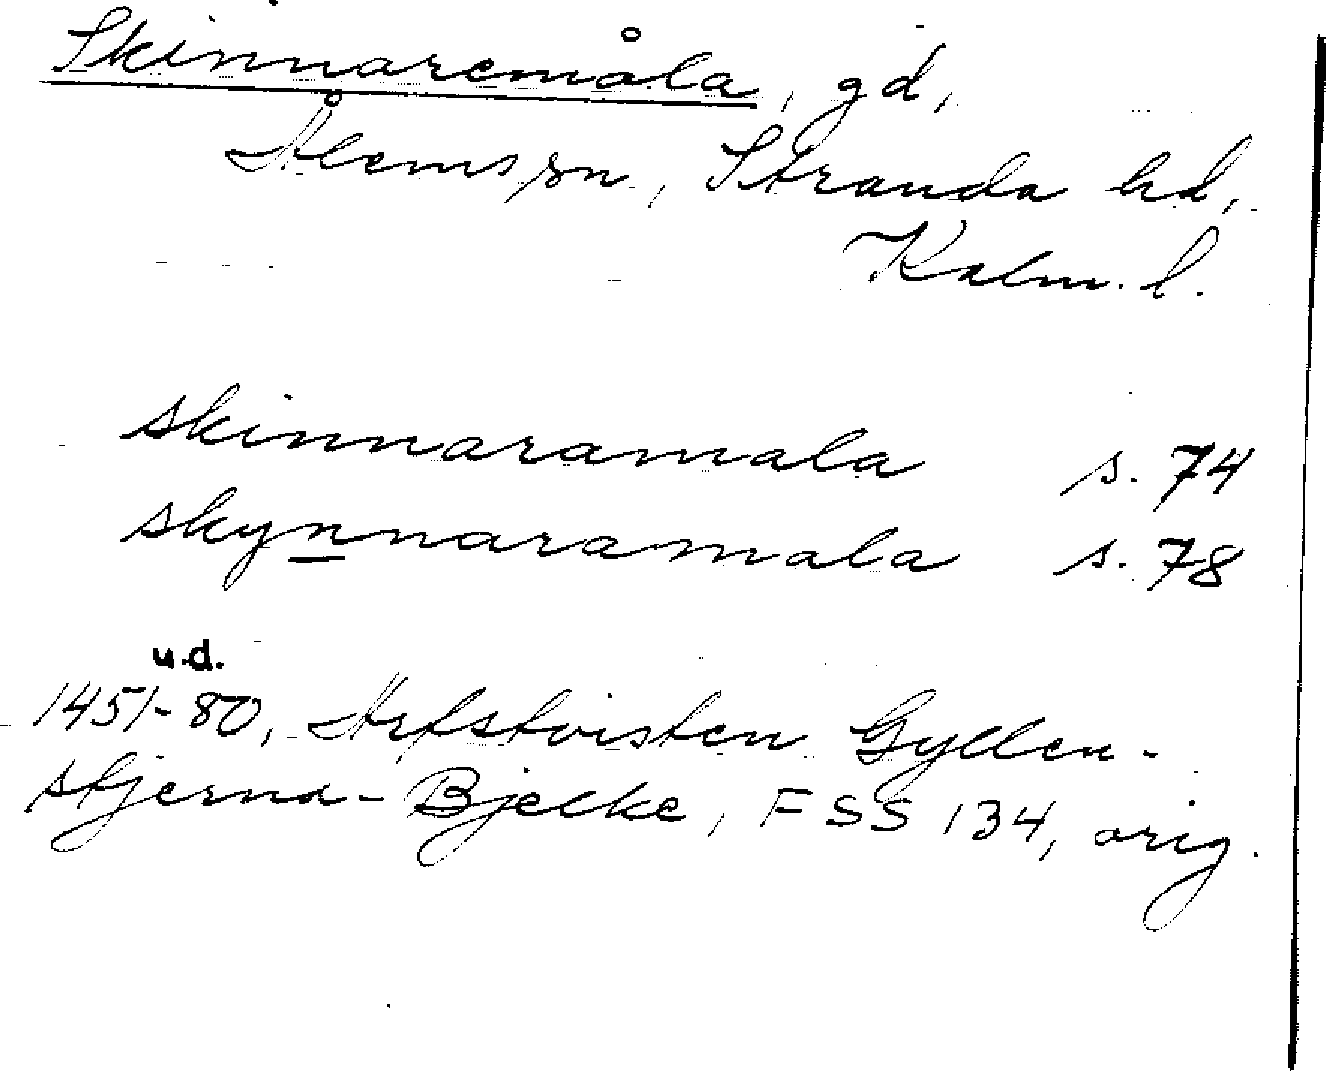 Skinnaremåla, gd,
Ålems sn, Stranda hd,
Kalm. l.
skinnaramala s. 74
skynnaramala s. 78
u.d.
1451-80, Arfstvisten Gyllen-
stjerna-Bjelke, FSS 134, orig.